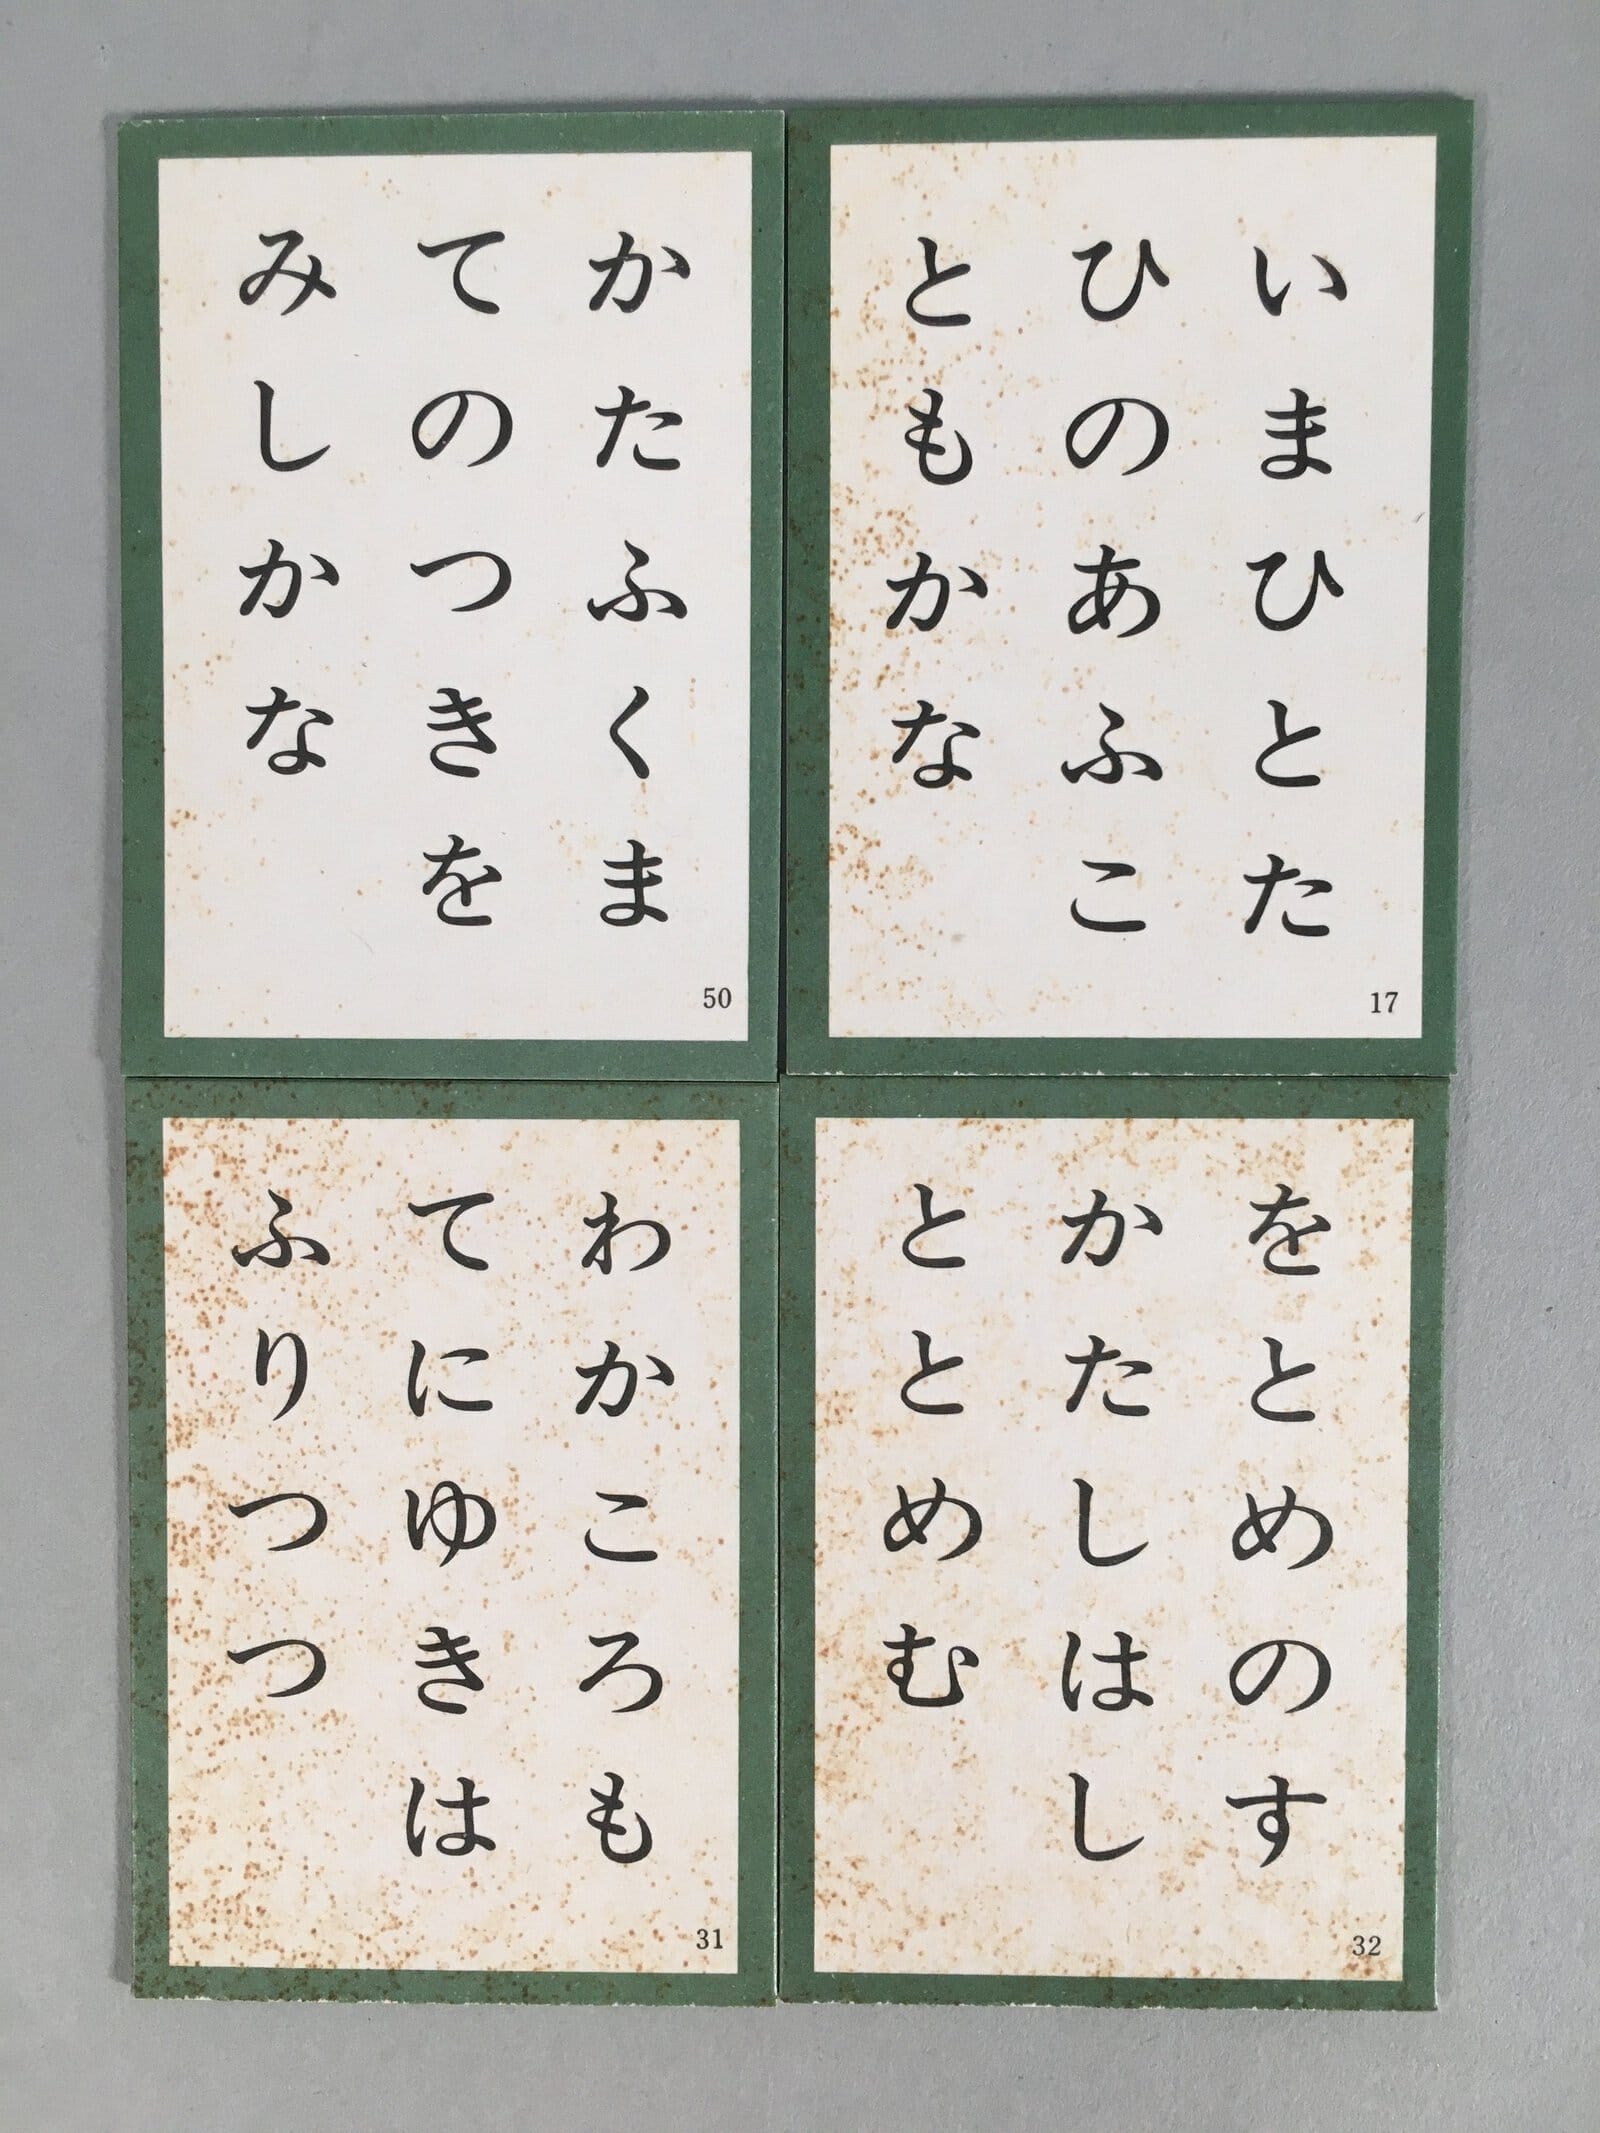 かたふくま
てのつきを
みしかな
50
いまひとた
ひのあふこ
ともかな
17
わかころも
てにゆきは
ふりつつ
31
をとめのす
かたしはし
ととめむ
32